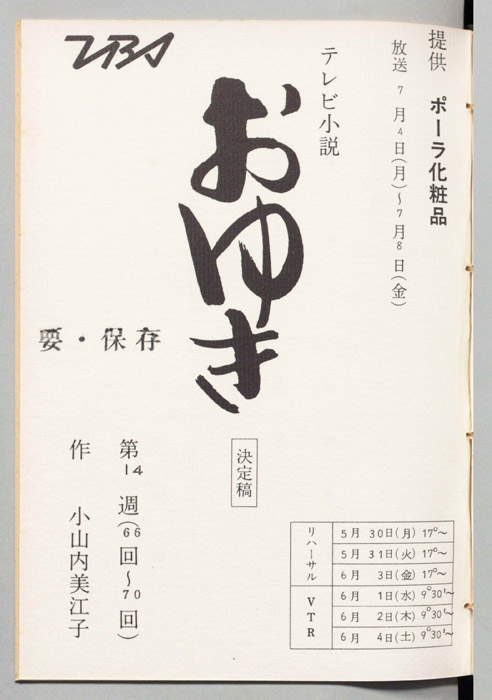 提供 ポーラ化粧品
放送 7月4日(月)~7月8日(金)
テレビ小説
おゆき
TBS
要・保存
決定稿
第14週(66回~70回)
作 小山内美江子
リハーサル
5月 30日(月) 17°°~
5月 31日(火) 17°°~
6月 3日(金) 17°°~
VTR
6月 1日(水) 9°30'~
6月 2日(木) 9°30'~
6月 4日(土) 9°30'~